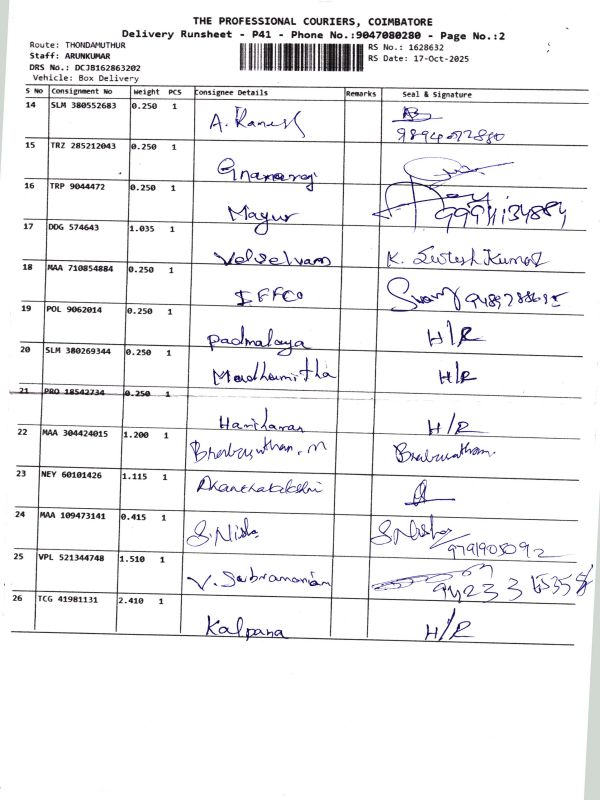 THE PROFESSIONAL COURIERS, COIMBATORE
Delivery Runsheet - P41 - Phone No.:9047080280 - Page No.:2
Route: THONDAMUTHUR RS No.: 1628632
Staff: ARUNKUMAR RS Date: 17-Oct-2025
DRS No.: DCJB162863202
Vehicle: Box Delivery
S No Consignment No Weight PCS Consignee Details Remarks Seal & Signature
14 SLM 380552683 0.250 1
A. Ramesh
15 TRZ 285212043 0.250 1
Gnanaraj
16 TRP 9044472 0.250 1
Mayur
17 DDG 574643 1.035 1
Velselvam K. Suresh Kumar
18 MAA 710854884 0.250 1
IFFCO
19 POL 9062014 0.250 1
Padmalaya H/R
20 SLM 380269344 0.250 1
Madhumitha H/R
21 PRO 18542734 0.250 1
Hariharan H/R
22 MAA 304424015 1.200 1
23 NEY 60101426 1.115 1
24 MAA 109473141 0.415 1
S. Nisha S. Nisha
9791905092
25 VPL 521344748 1.510 1
V. Subramanian
26 TCG 41981131 2.410 1
Kalpana H/R